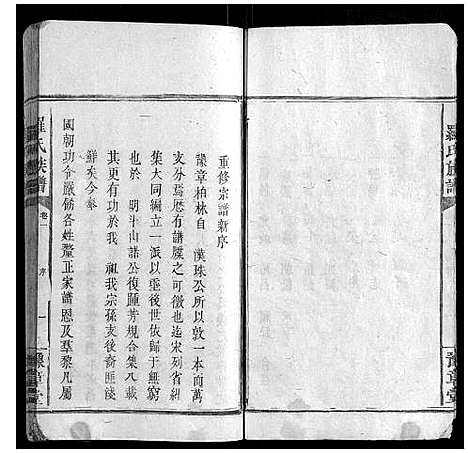 羅氏族譜
豫章堂
重修宗譜新序
豫章柏林自 漢珠公所以敦一本而萬
支分焉歷有譜牒之可徵也迄宋列省紹
集大同編立一派以垂後世依歸于無窮
也於 明斗山譜公復踵芳規合集八載
其更有功於我 祖我宗孫支後裔匪淺
鮮矣今奉
國朝功令嚴飭各姓釐正家譜恩及羣黎凡屬
羅氏族譜
卷一
序
一
豫章堂